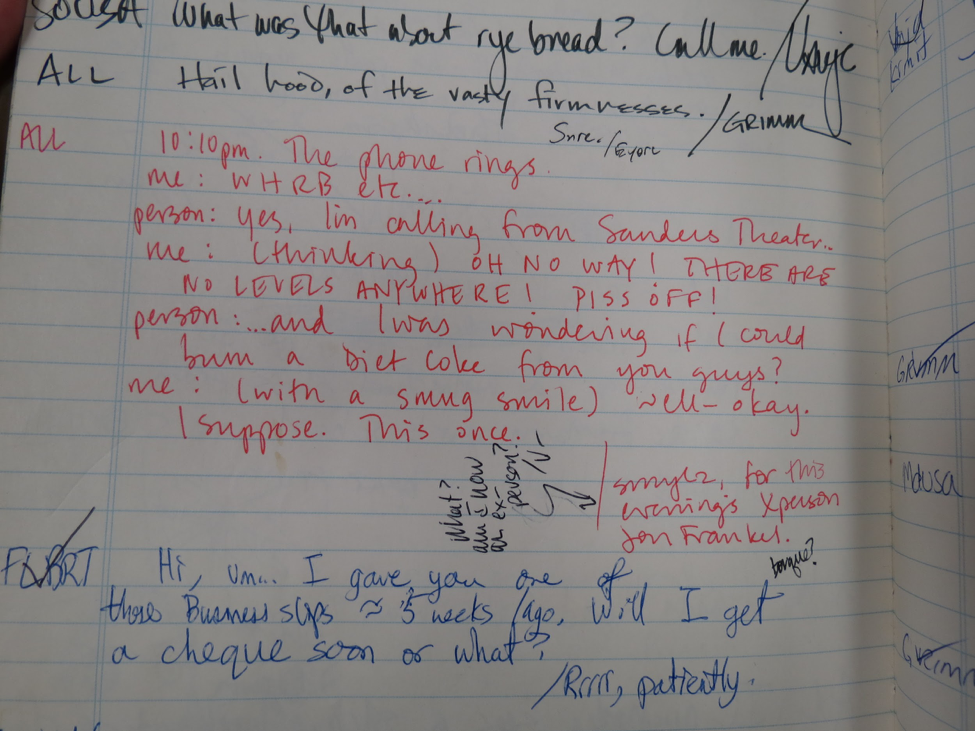 SOUSA What was that about rye bread? Call me. /
ALL Hail hood, of the vasty firmnesses. /GRIMM
Snre. /Eyore
ALL 10:10pm. The phone rings.
me: WHRB etc....
person: yes, I'm calling from Sanders Theater..
me: (thinking) OH NO WAY! THERE ARE
NO LEVELS ANYWHERE! PISS OFF!
person: ...and I was wondering if I could
bum a Diet Coke from you guys?
me: (with a smug smile) well- okay.
I suppose. This once.
What?
am I now
an ex-
person?
smylz, for this
evening's Xperson
Jon Frankel.
Hi, um... I gave you one of
those Business slips ≈ 5 weeks ago, Will I get
a cheque soon or what?
torque?
/Rrrr, patiently.
GRIMM
Mdusa